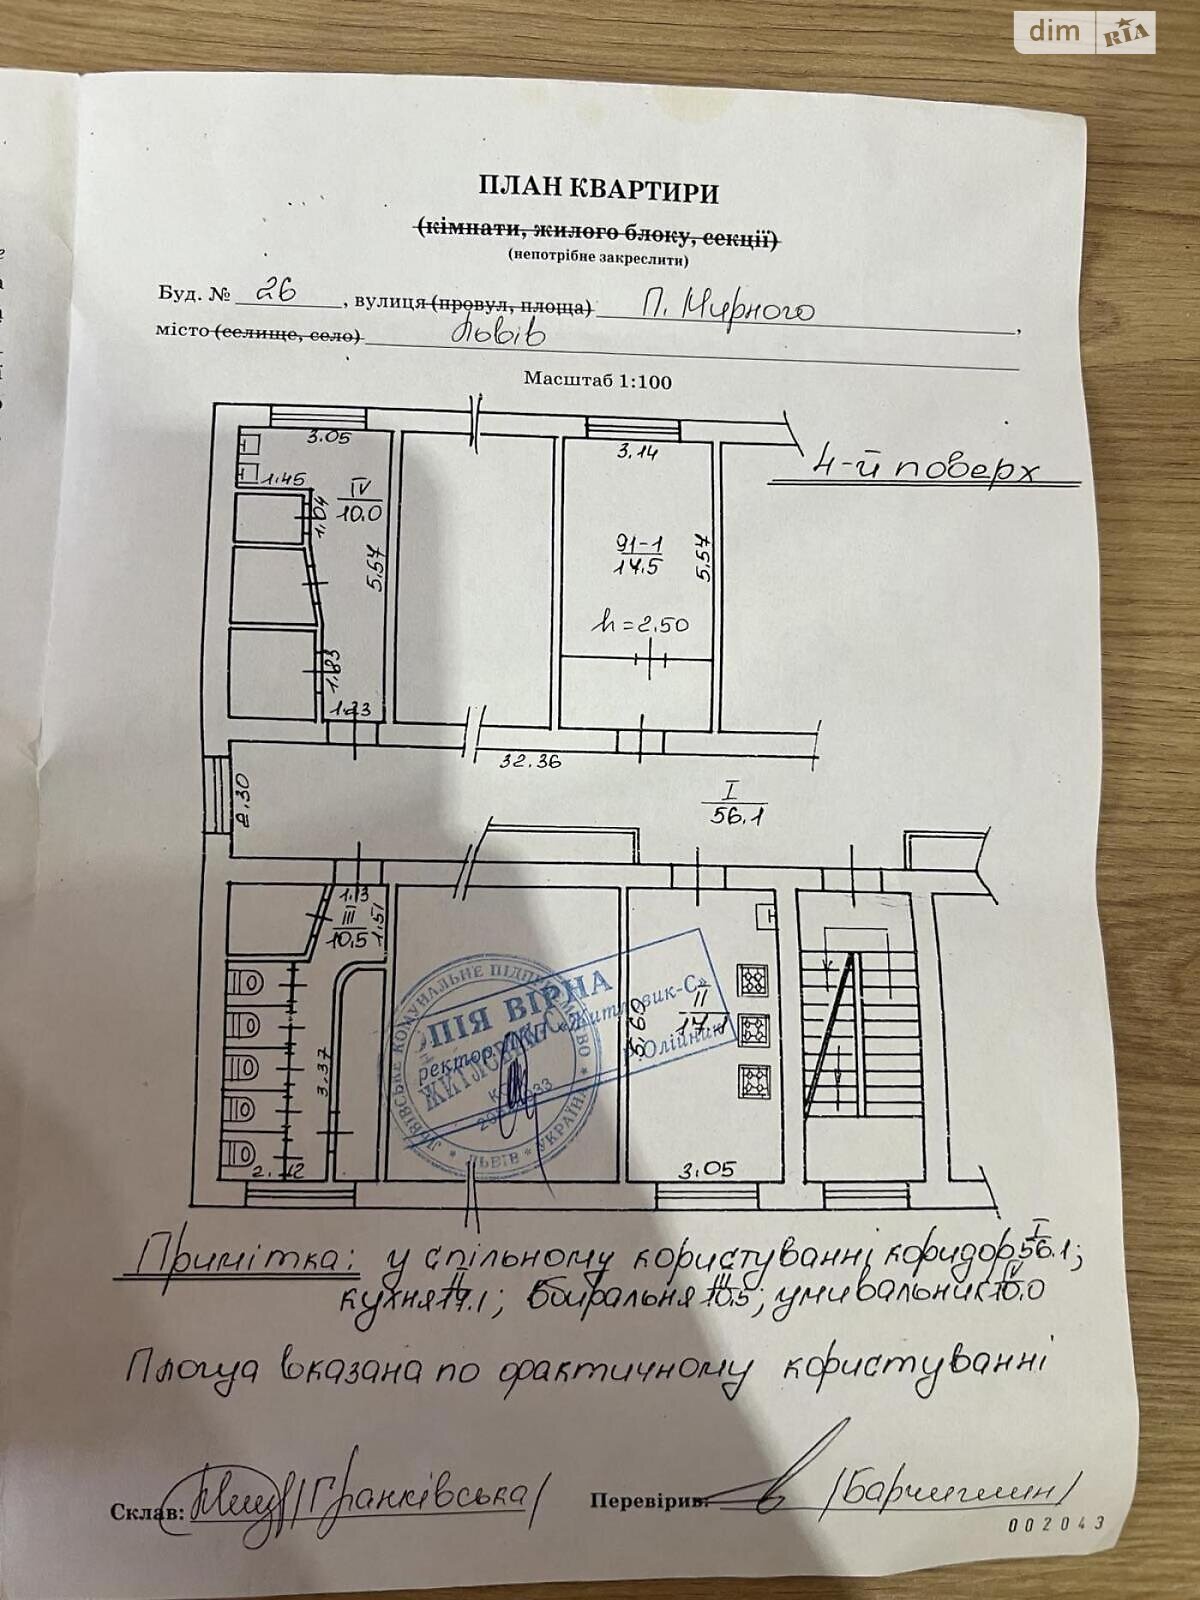 dim RIA
ПЛАН КВАРТИРИ
(кімнати, жилого блоку, секції)
(непотрібне закреслити)
Буд. № 26, вулиця (провул, площа) П. Мирного,
місто (селище, село) Львів
Масштаб 1:100
4-й поверх
3.05
3.14
1.45
IV
10.0
1.04
5.57
91-1
17.5
5.57
h=2.50
1.83
1.23
32.36
2.30
I
56.1
1.13
III
10.5
1.51
3.37
2.12
II
17.1
5.60
3.05
ЛЬВІВСЬКЕ КОМУНАЛЬНЕ ПІДПРИЄМСТВО
* ЛЬВІВ * УКРАЇНА *
КОПІЯ ВІРНА
Директор ЛКП «Житловик-С»
Олійник
Примітка: у спільному користуванні коридор I 56.1;
кухня II 17.1; вбиральня III 10.5; умивальник IV 10.0
Площа вказана по фактичному користуванні
Склав: /Гранківська/
Перевірив:
002043